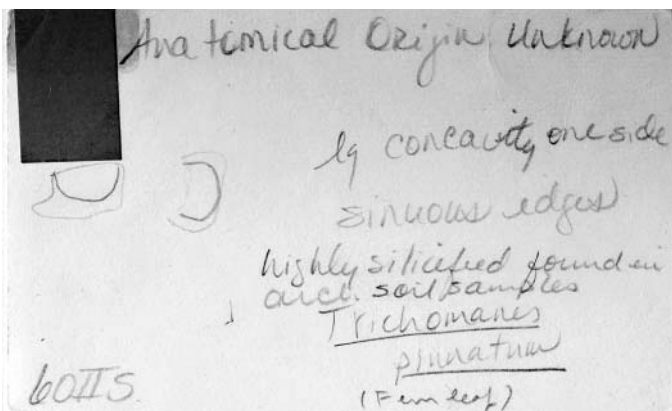 Anatomical Origin Unknown
lg concavity one side
sinuous edges
highly silicified found in
arch. soil samples
Trichomanes
pinnatum
(Fern leaf)
60IIS